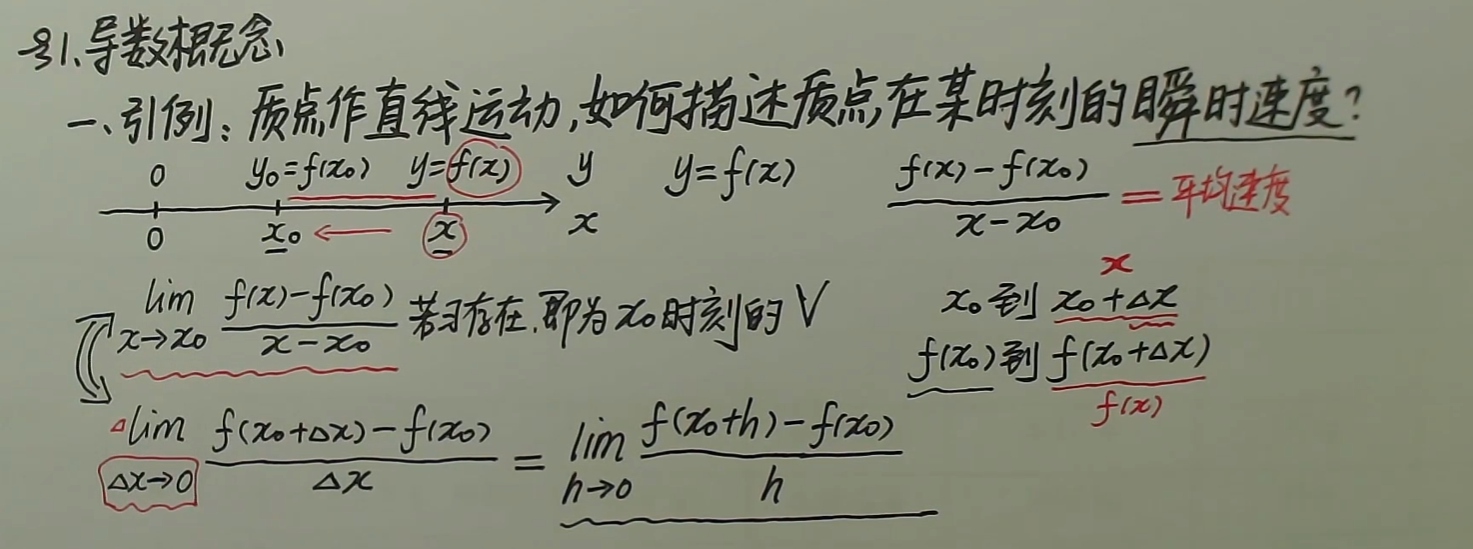 §1.导数概念
一、引例：质点作直线运动，如何描述质点在某时刻的瞬时速度？
0 y₀=f(x₀) y=f(x) y y=f(x) (f(x)-f(x₀))/(x-x₀) = 平均速度
0 x₀ ← x x
lim x→x₀ (f(x)-f(x₀))/(x-x₀) 若∃存在，即为x₀时刻的V
x
x₀到x₀+Δx
f(x₀)到f(x₀+Δx)
f(x)
lim Δx→0 (f(x₀+Δx)-f(x₀))/Δx = lim h→0 (f(x₀+h)-f(x₀))/h